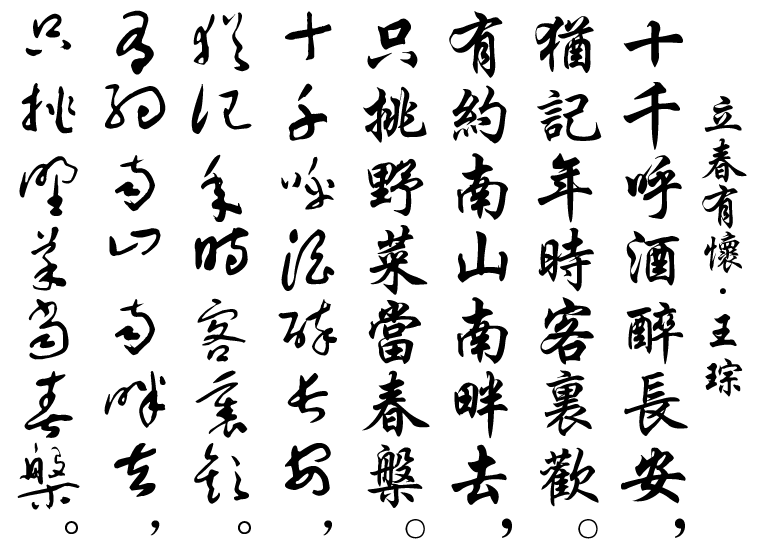 立春有懷·王琮
十千呼酒醉長安，
猶記年時客裏歡。
有約南山南畔去，
只挑野菜當春槃。
十千呼酒醉長安，
猶記年時客裏歡。
有約南山南畔去，
只挑野菜當春槃。